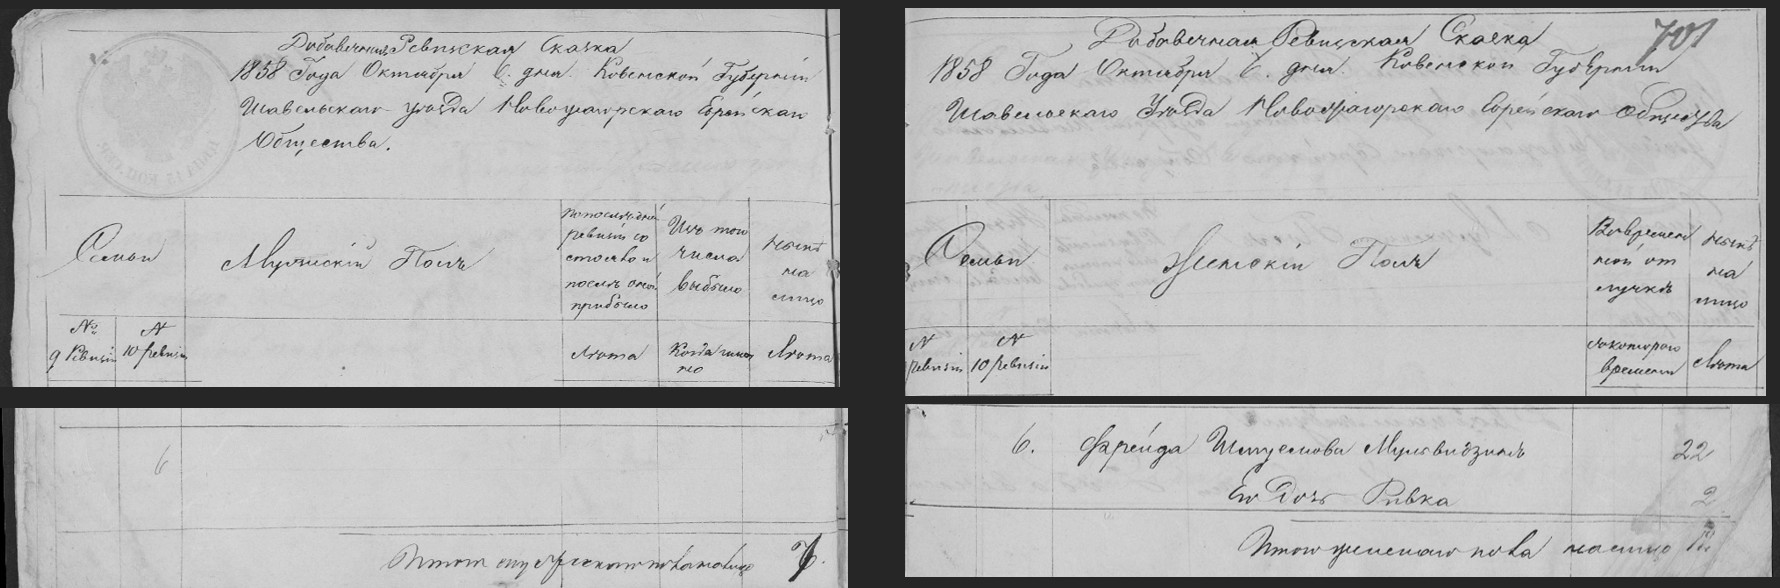 Добавочная Ревизская Сказка
1858 Года Октября 6. дня. Ковенской Губернии
Шавельского уезда Новожагорского Еврейскаго
Общества.
Семьи
Мужский Полъ
по последней ревизіи состояло и после оной прибыло
Изъ того числа выбыло
ныне на лицо
№ 9 ревизіи
№ 10 ревизіи
Лета
Когда именно
Лета
701
Добавочная Ревизская Сказка
1858 Года Октября 6. дня. Ковенской Губернии
Шавельскаго Уезда Новожагорскаго Еврейскаго Общества
Семьи
Женскій Полъ
Во временной отлучке
ныне на лицо
№ ревизіи
№ 10 ревизіи
с котораго времени
Лета
6
Итого мужескаго пола на лицо 7.
6. Фрейда Шмуелова 22
Ея Дочь Ривка 2
Итого женскаго пола на лицо